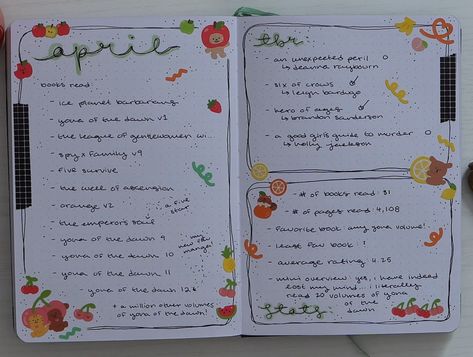 april
books read:
- ice planet barbarians
- yona of the dawn v1
- the league of gentlewomen wi...
- spy x family v9
- five survive
- the well of ascension
- orange v2
- the emperor's soul
a five star
- yona of the dawn 9
- yona of the dawn 10
- yona of the dawn 11
my new fav manga!
- yona of the dawn 12
+ a million other volumes
of yona of the dawn!
tbr
- an unexpected peril
↳ deanna raybourn
- six of crows
↳ leigh bardugo
- hero of ages
↳ brandon sanderson
- a good girls guide to murder
↳ holly jackson
- # of books read: 31
- # of pages read: 4,108
- favorite book: any yona volume!
- least fav book: !
- average rating: 4.25
- mini overview: yes, i have indeed
lost my mind... i literally
read 20 volumes of yona
of the
dawn
stats